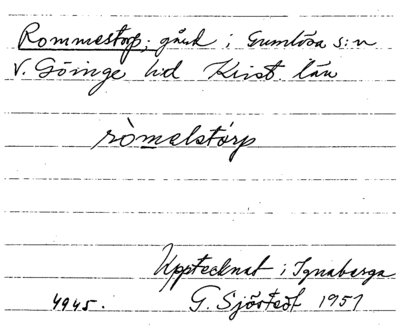 Rommestorp; gård i Gumlösa s:n
V. Göinge hd Krist. län
ròmelstórp
Upptecknat i Ignaberga
4945. G. Sjöstedt 1951